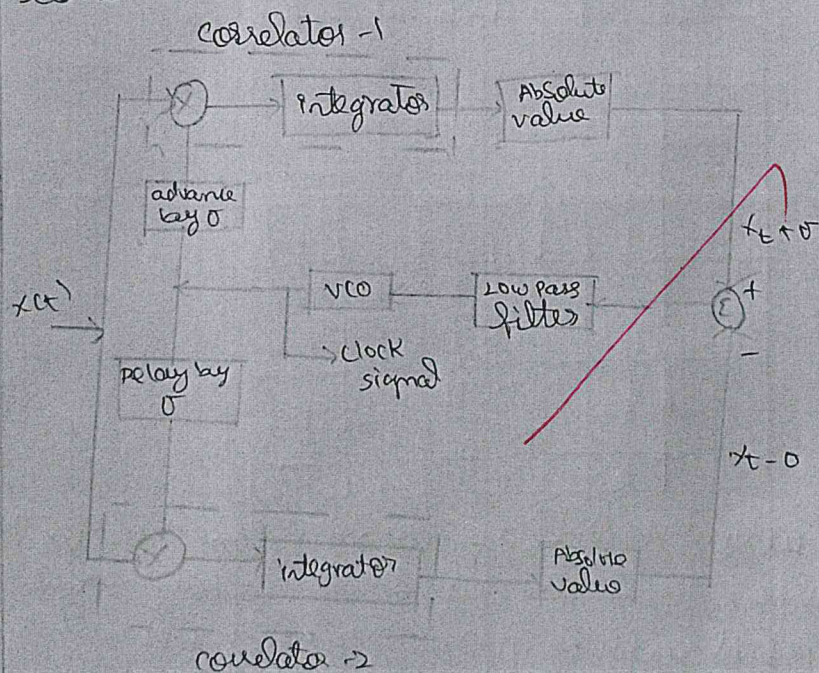 correlator -1
integrator
Absolute
value
advance
by σ
x_t + σ
x(t)
VCO
Low pass
filter
Σ
+
-
clock
signal
Delay by
σ
x_t - σ
integrator
Absolute
value
correlator -2